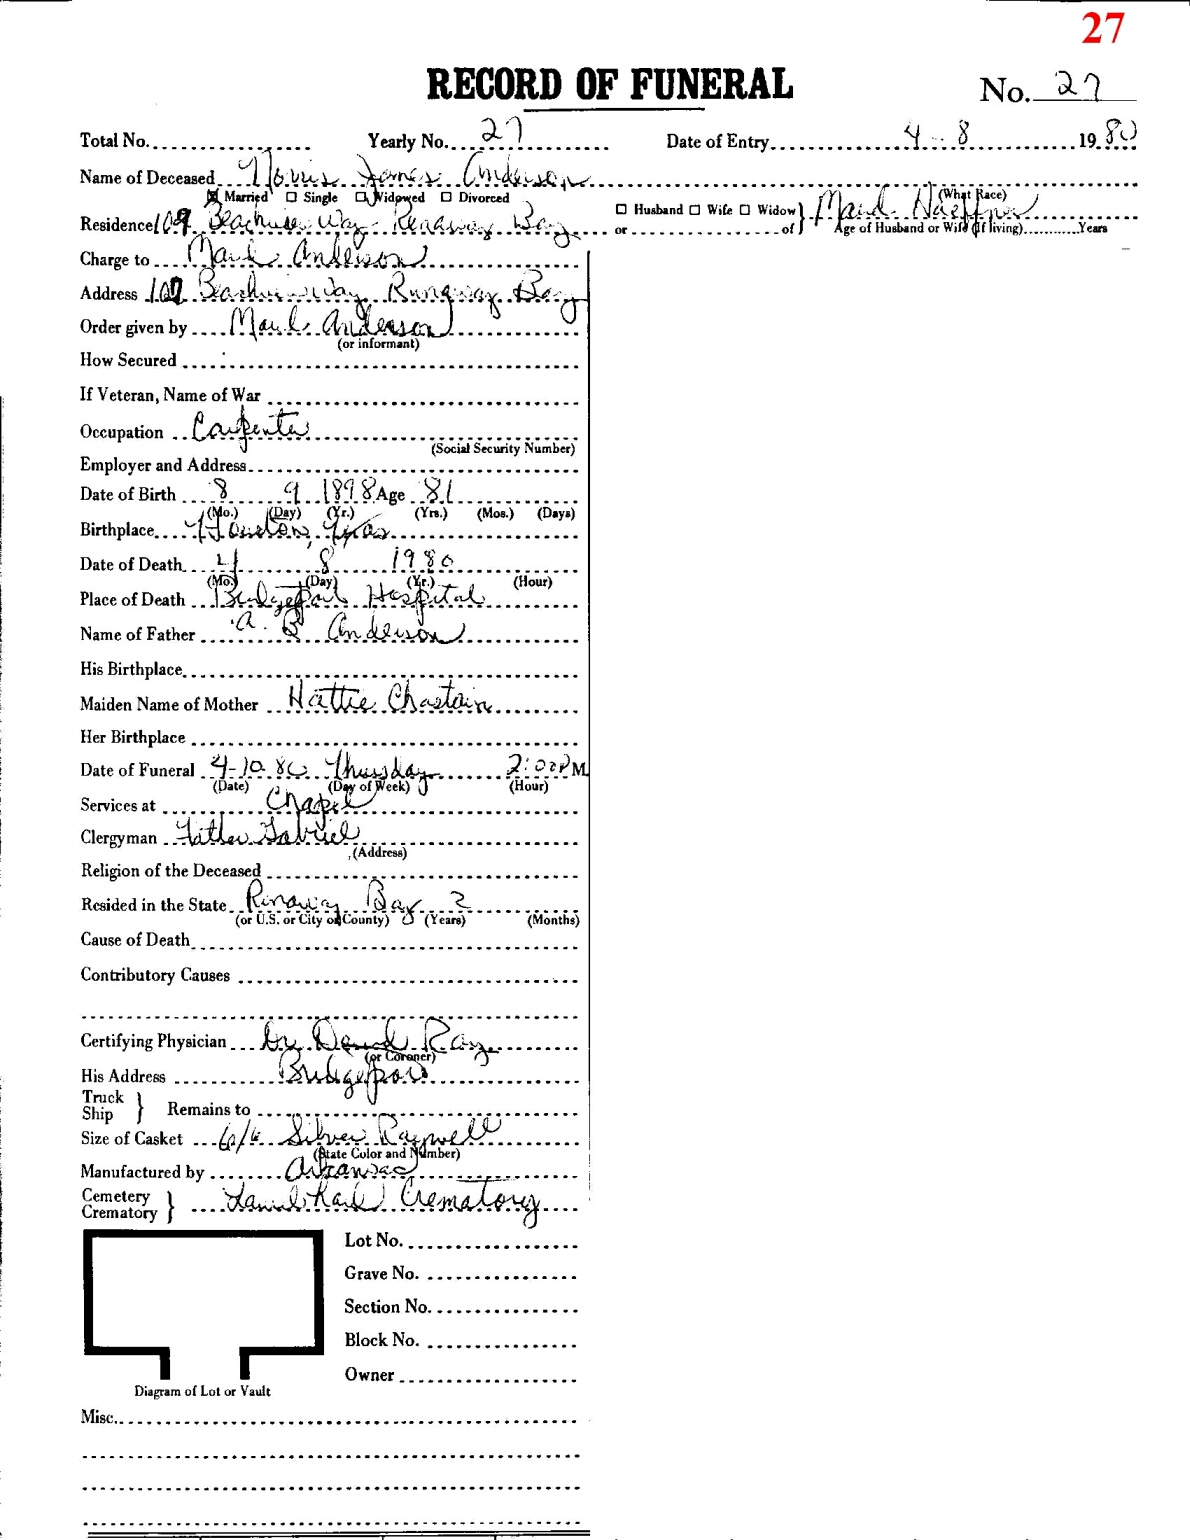 27
RECORD OF FUNERAL
No. 27
Total No. Yearly No. 27 Date of Entry 4-8 1980
Name of Deceased James Anderson (What Race)
Married Single Widowed Divorced
Residence 109 Way Bay Husband Wife Widow
or of Age of Husband or Wife (If living) Years
Charge to Anderson
Address Way Runaway Bay
Order given by Anderson
(or informant)
How Secured
If Veteran, Name of War
Occupation Carpenter
(Social Security Number)
Employer and Address
Date of Birth 8 9 1898 Age 81
(Mo.) (Day) (Yr.) (Yrs.) (Mos.) (Days)
Birthplace Houston, Texas
Date of Death 4 8 1980
(Mo.) (Day) (Yr.) (Hour)
Place of Death Bridgeport Hospital
Name of Father A. B Anderson
His Birthplace
Maiden Name of Mother Hattie Chastain
Her Birthplace
Date of Funeral 4-10 80 Thursday 2:00 PM.
(Date) (Day of Week) (Hour)
Services at Chapel
Clergyman Father Gabriel
(Address)
Religion of the Deceased
Resided in the State Bay 2
(or U.S. or City or County) (Years) (Months)
Cause of Death
Contributory Causes
Certifying Physician Dr. David Ray
(or Coroner)
His Address Bridgeport
Truck
Ship } Remains to
Size of Casket 6/6 Silver
(State Color and Number)
Manufactured by Arkansas
Cemetery
Crematory } Crematory
Lot No.
Grave No.
Section No.
Block No.
Owner
Diagram of Lot or Vault
Misc.